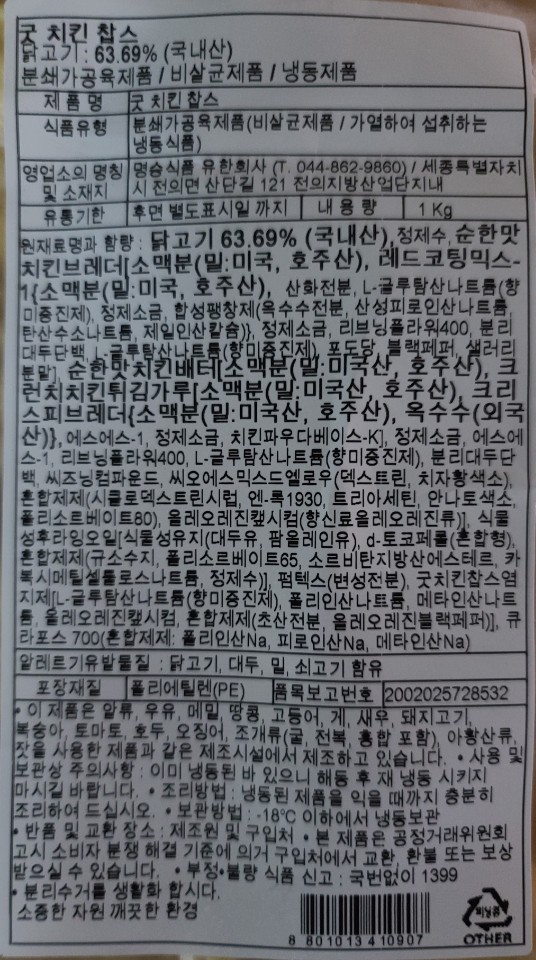 굿 치킨 찹스
닭고기 : 63.69% (국내산)
분쇄가공육제품 / 비살균제품 / 냉동제품
제 품 명 굿 치킨 찹스
식품유형 분쇄가공육제품(비살균제품 / 가열하여 섭취하는
냉동식품)
영업소의 명칭 명승식품 유한회사 (T. 044-862-9860) / 세종특별자치
및 소재지 시 전의면 산단길 121 전의지방산업단지내
유통기한 후면 별도표시일 까지 내 용 량 1 Kg
원재료명과 함량 : 닭고기 63.69% (국내산), 정제수, 순한맛
치킨브레더[소맥분(밀:미국, 호주산), 레드코팅믹스-
1{소맥분(밀:미국, 호주산), 산화전분, L-글루탐산나트륨(향
미증진제), 정제소금, 합성팽창제(옥수수전분, 산성피로인산나트륨,
탄산수소나트륨, 제일인산칼슘)}, 정제소금, 리브닝플라워400, 분리
대두단백, L-글루탐산나트륨(향미증진제), 포도당, 블랙페퍼, 샐러리
분말], 순한맛치킨배터[소맥분(밀:미국산, 호주산), 크
런치치킨튀김가루[소맥분(밀:미국산, 호주산), 크리
스피브레더{소맥분(밀:미국산, 호주산), 옥수수(외국
산)}, 에스에스-1, 정제소금, 치킨파우다베이스-K], 정제소금, 에스에
스-1, 리브닝플라워400, L-글루탐산나트륨(향미증진제), 분리대두단
백, 씨즈닝컴파운드, 씨오에스믹스드엘로우(덱스트린, 치자황색소),
혼합제제(시클로덱스트린시럽, 엔-록1930, 트리아세틴, 안나토색소,
폴리소르베이트80), 올레오레진캪시컴(향신료올레오레진류)], 식물
성후라잉오일[식물성유지(대두유, 팜올레인유), d-토코페롤(혼합형),
혼합제제(규소수지, 폴리소르베이트65, 소르비탄지방산에스테르, 카
복시메틸셀룰로스나트륨, 정제수)], 펌텍스(변성전분), 굿치킨찹스염
지제[L-글루탐산나트륨(향미증진제), 폴리인산나트륨, 메타인산나트
륨, 올레오레진캪시컴, 혼합제제(초산전분, 올레오레진블랙페퍼)], 큐
라포스 700(혼합제제: 폴리인산Na, 피로인산Na, 메타인산Na)
알레르기유발물질 : 닭고기, 대두, 밀, 쇠고기 함유
포장재질 폴리에틸렌(PE) 품목보고번호 2002025728532
• 이 제품은 알류, 우유, 메밀, 땅콩, 고등어, 게, 새우, 돼지고기,
복숭아, 토마토, 호두, 오징어, 조개류(굴, 전복, 홍합 포함), 아황산류,
잣을 사용한 제품과 같은 제조시설에서 제조하고 있습니다. • 사용 및
보관상 주의사항 : 이미 냉동된 바 있으니 해동 후 재 냉동 시키지
마시길 바랍니다. • 조리방법 : 냉동된 제품을 익을 때까지 충분히
조리하여 드십시오. • 보관방법 : -18℃ 이하에서 냉동보관
• 반품 및 교환 장소 : 제조원 및 구입처 • 본 제품은 공정거래위원회
고시 소비자 분쟁 해결 기준에 의거 구입처에서 교환, 환불 또는 보상
받으실 수 있습니다. • 부정·불량 식품 신고 : 국번없이 1399
• 분리수거를 생활화 합시다.
소중한 자원 깨끗한 환경
비닐류
OTHER
8 801013 410907